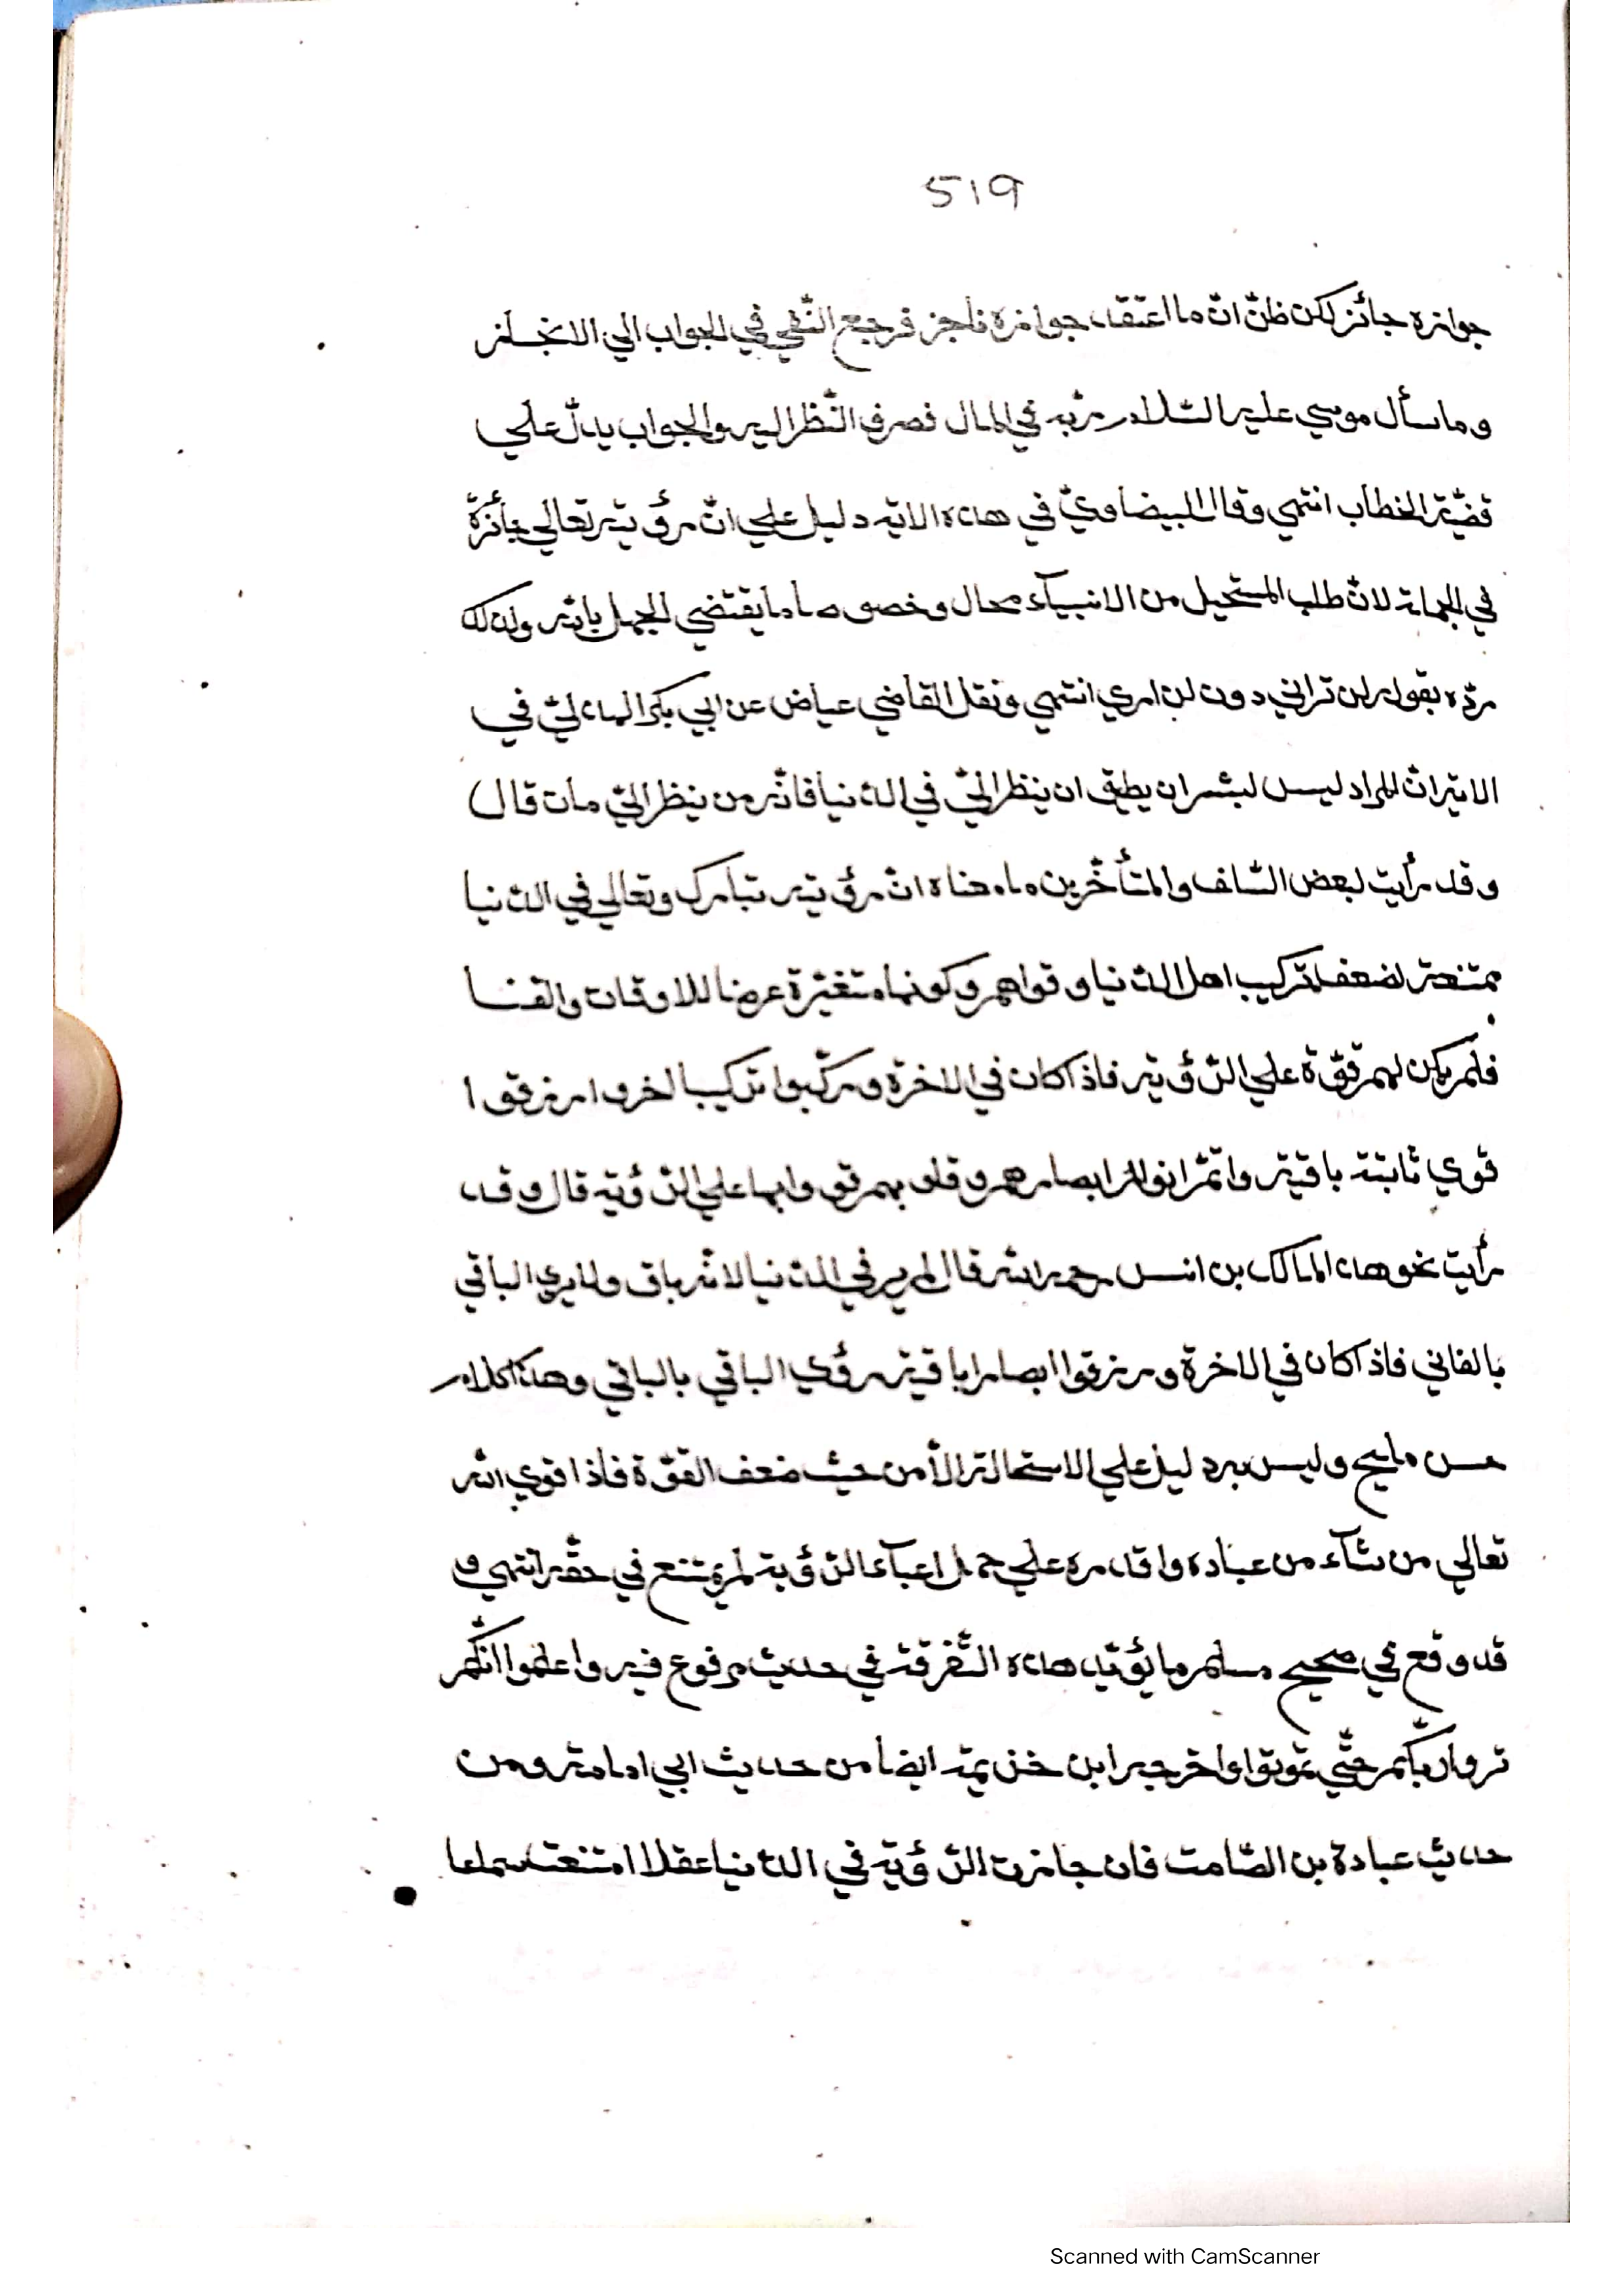 519
جوازه جائز لكن ظنّ انّ ما اعتقد جوازه ناجز فرجع النّفي في الجواب الي الانجاز
وما سأل موسي عليه السّلام ربّه في المال فصرف النّظر اليه والجواب يدلّ علي
قضيّة الخطاب انتهي وقال البيضاويّ في هذه الاية دليل علي انّ رؤيته تعالي جائزة
في الجملة لانّ طلب المستحيل من الانبيآء محال وخصوصا ما يقتضي الجهل بالله ولذلك
ردّه بقوله لن تراني دون لن اري انتهي ونقل القاضي عياض عن ابي بكر الهذليّ في
الاية انّ المراد ليس لبشر ان يطيق ان ينظر اليّ في الدّنيا فانّه من ينظر اليّ مات قال
وقد رأيت لبعض السّلف والمتأخّرين ما معناه انّ رؤيته تبارك وتعالي في الدّنيا
ممتنعة لضعف تركيب اهل الدّنيا وقواهم وكونها متغيّرة عرضا للاوقات والفنا
فلم يكن لهم قوّة علي الرّؤية فاذا كان في الاخرة وركّبوا تركيبا اخر وارزقوا
قوي ثابتة باقية واتمّ انوار ابصارهم وقلوبهم قووا بها علي الرّؤية قال وقد
رأيت نحو هذا لمالك بن انس رحمه الله قال لم ير في الدّنيا لانّه باق ولا يري الباقي
بالفاني فاذا كان في الاخرة ورزقوا ابصارا باقية رؤي الباقي بالباقي وهذا كلام
حسن مليح وليس فيه دليل علي الاستحالة الّا من حيث ضعف القوّة فاذا قوي الله
تعالي من شآء من عباده واقدره علي حمل اعبآء الرّؤية لم يمتنع في حقّه انتهي و
قد وقع في صحيح مسلم ما يؤيّد هذه التّفرقة في حديث مرفوع فيه واعلموا انّكم لن
تروا ربّكم حتّي تموتوا واخرجه ابن خزيمة ايضا من حديث ابي امامة ومن
حديث عبادة بن الصّامت فان جازت الرّؤية في الدّنيا عقلا امتنعت سمعا
Scanned with CamScanner